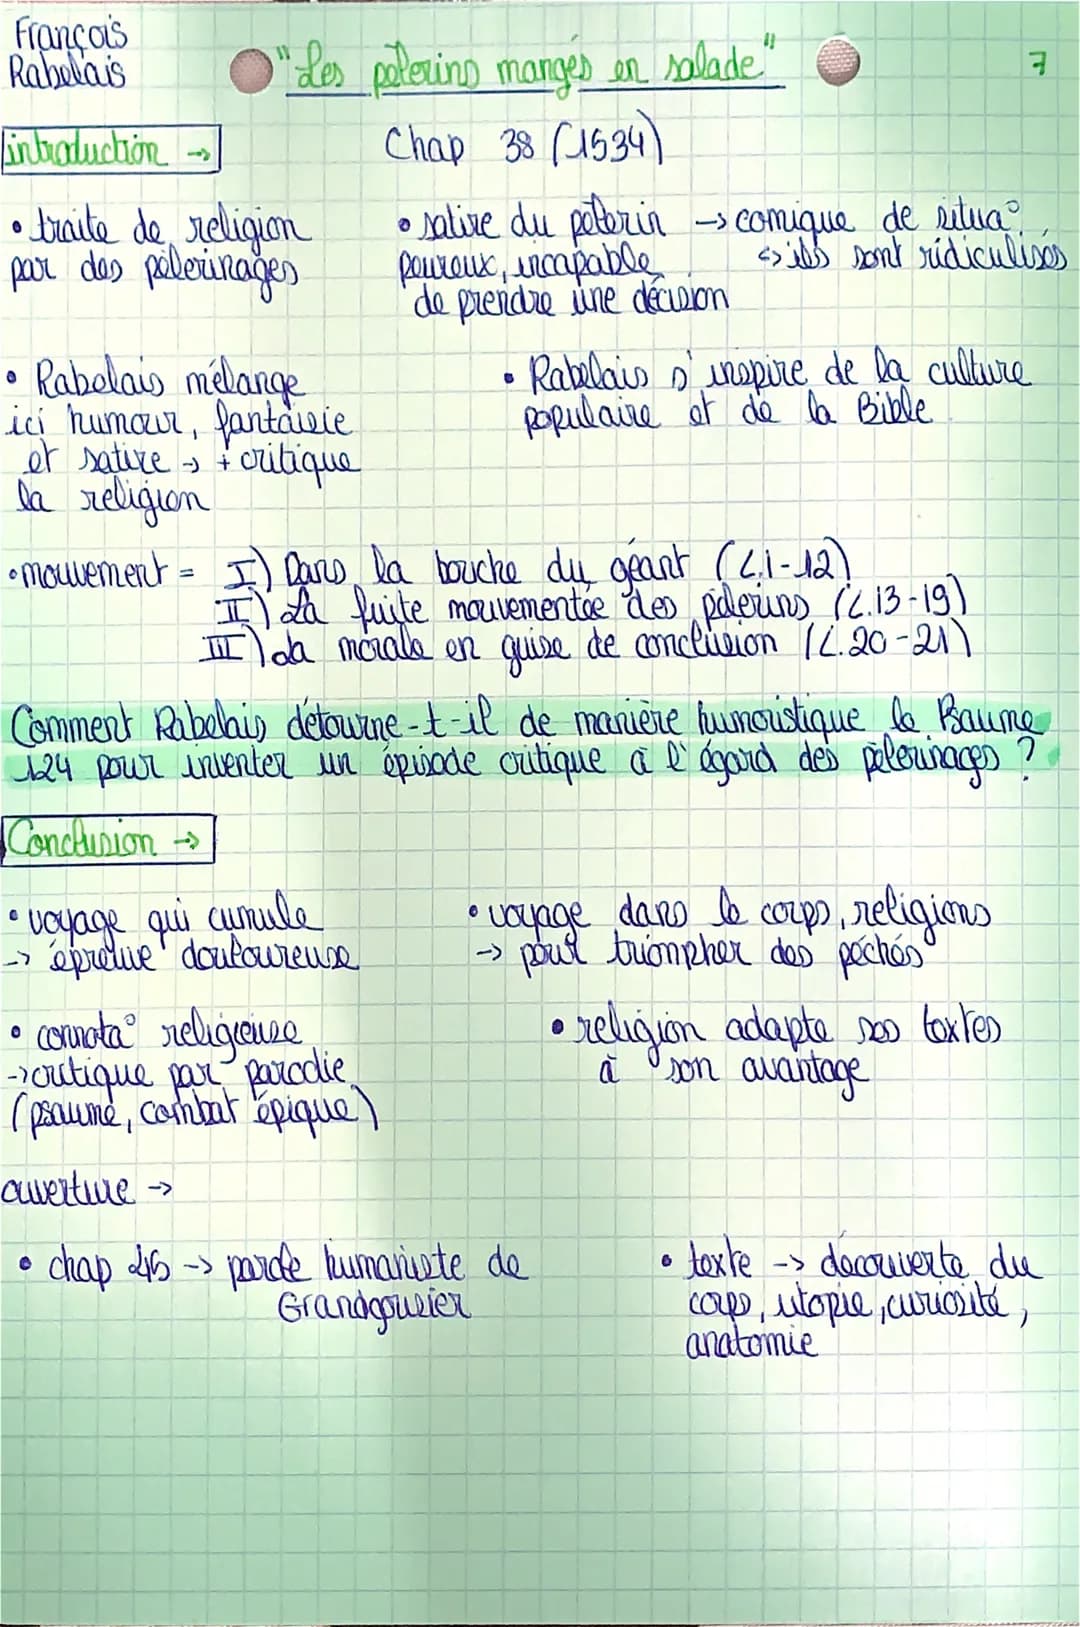 François
Rabelais
"Les pèlerins mangés en salade"
7
introduction →
Chap 38 (1534)
• traite de religion
par des pèlerinages
• satire du pèlerin → comique de situa°
peureux, incapable
de prendre une décision
↔ ils sont ridiculisés
• Rabelais mélange
ici humour, fantaisie
et satire → + critique
la religion
• Rabelais s'inspire de la culture
populaire et de la Bible.
• mouvement = I) Dans la bouche du géant (L.1-12)
II) La fuite mouvementée des pèlerins (L.13-19)
III) La morale en guise de conclusion (L.20-21)
Comment Rabelais détourne-t-il de manière humoristique le Psaume
124 pour inventer un épisode critique à l'égard des pèlerinages ?
Conclusion →
• voyage qui cumule
→ épreuve douloureuse
• voyage dans le corps, religions
→ pour triompher des péchés
• connota° religieuse
→ critique par parodie
(psaume, combat épique)
• religion adapte ses textes
à son avantage
ouverture →
• chap 45 → parole humaniste de
Grandgousier
• texte → découverte du
corps, utopie, curiosité,
anatomie